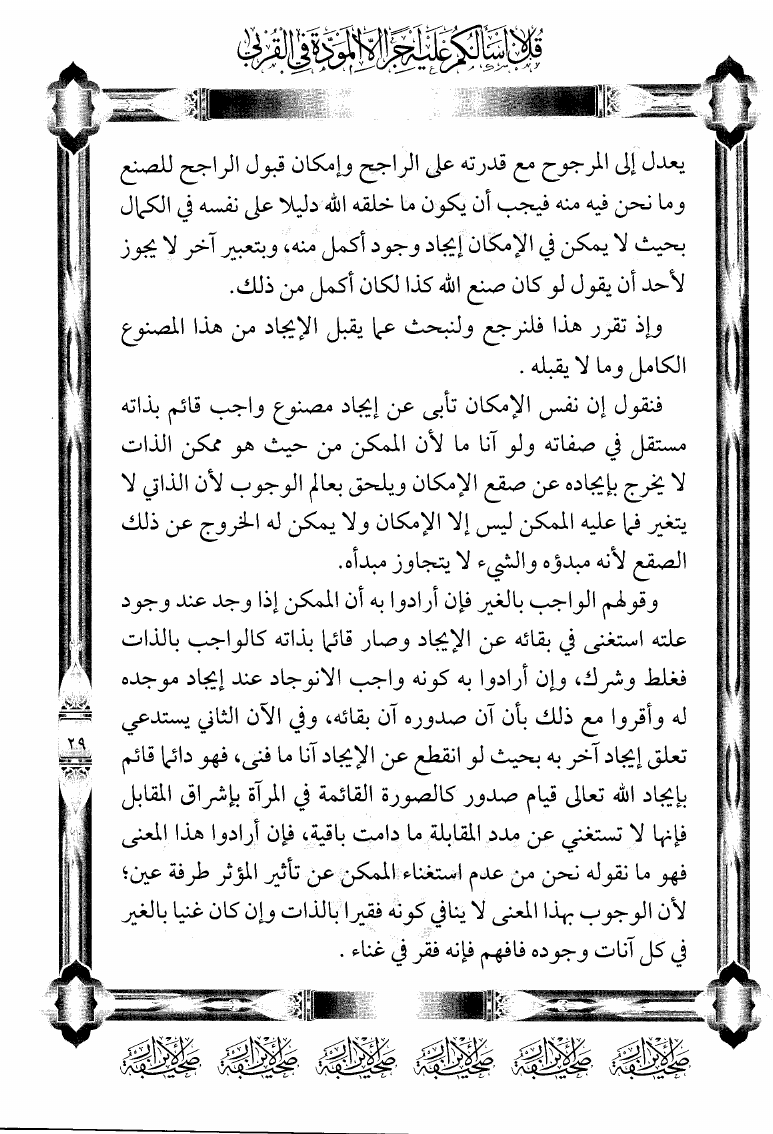 قل لا اسألكم عليه اجرا الا المودة في القربى
يعدل إلى المرجوح مع قدرته على الراجح وإمكان قبول الراجح للصنع
وما نحن فيه منه فيجب أن يكون ما خلقه الله دليلا على نفسه في الكمال
بحيث لا يمكن في الإمكان إيجاد وجود أكمل منه، وبتعبير آخر لا يجوز
لأحد أن يقول لو كان صنع الله كذا لكان أكمل من ذلك.
وإذ تقرر هذا فلنرجع ولنبحث عما يقبل الإيجاد من هذا المصنوع
الكامل وما لا يقبله .
فنقول إن نفس الإمكان تأبى عن إيجاد مصنوع واجب قائم بذاته
مستقل في صفاته ولو آنا ما لأن الممكن من حيث هو ممكن الذات
لا يخرج بإيجاده عن صقع الإمكان ويلحق بعالم الوجوب لأن الذاتي لا
يتغير فما عليه الممكن ليس إلا الإمكان ولا يمكن له الخروج عن ذلك
الصقع لأنه مبدؤه والشيء لا يتجاوز مبدأه.
وقولهم الواجب بالغير فإن أرادوا به أن الممكن إذا وجد عند وجود
علته استغنى في بقائه عن الإيجاد وصار قائما بذاته كالواجب بالذات
فغلط وشرك، وإن أرادوا به كونه واجب الانوجاد عند إيجاد موجده
له وأقروا مع ذلك بأن آن صدوره آن بقائه، وفي الآن الثاني يستدعي
تعلق إيجاد آخر به بحيث لو انقطع عن الإيجاد آنا ما فنى، فهو دائما قائم
بإيجاد الله تعالى قيام صدور كالصورة القائمة في المرآة بإشراق المقابل
فإنها لا تستغني عن مدد المقابلة ما دامت باقية، فإن أرادوا هذا المعنى
فهو ما نقوله نحن من عدم استغناء الممكن عن تأثير المؤثر طرفة عين؛
لأن الوجوب بهذا المعنى لا ينافي كونه فقيرا بالذات وإن كان غنيا بالغير
في كل آنات وجوده فافهم فإنه فقر في غناء .
٢٩
صحيفة الأبرار صحيفة الأبرار صحيفة الأبرار صحيفة الأبرار صحيفة الأبرار صحيفة الأبرار